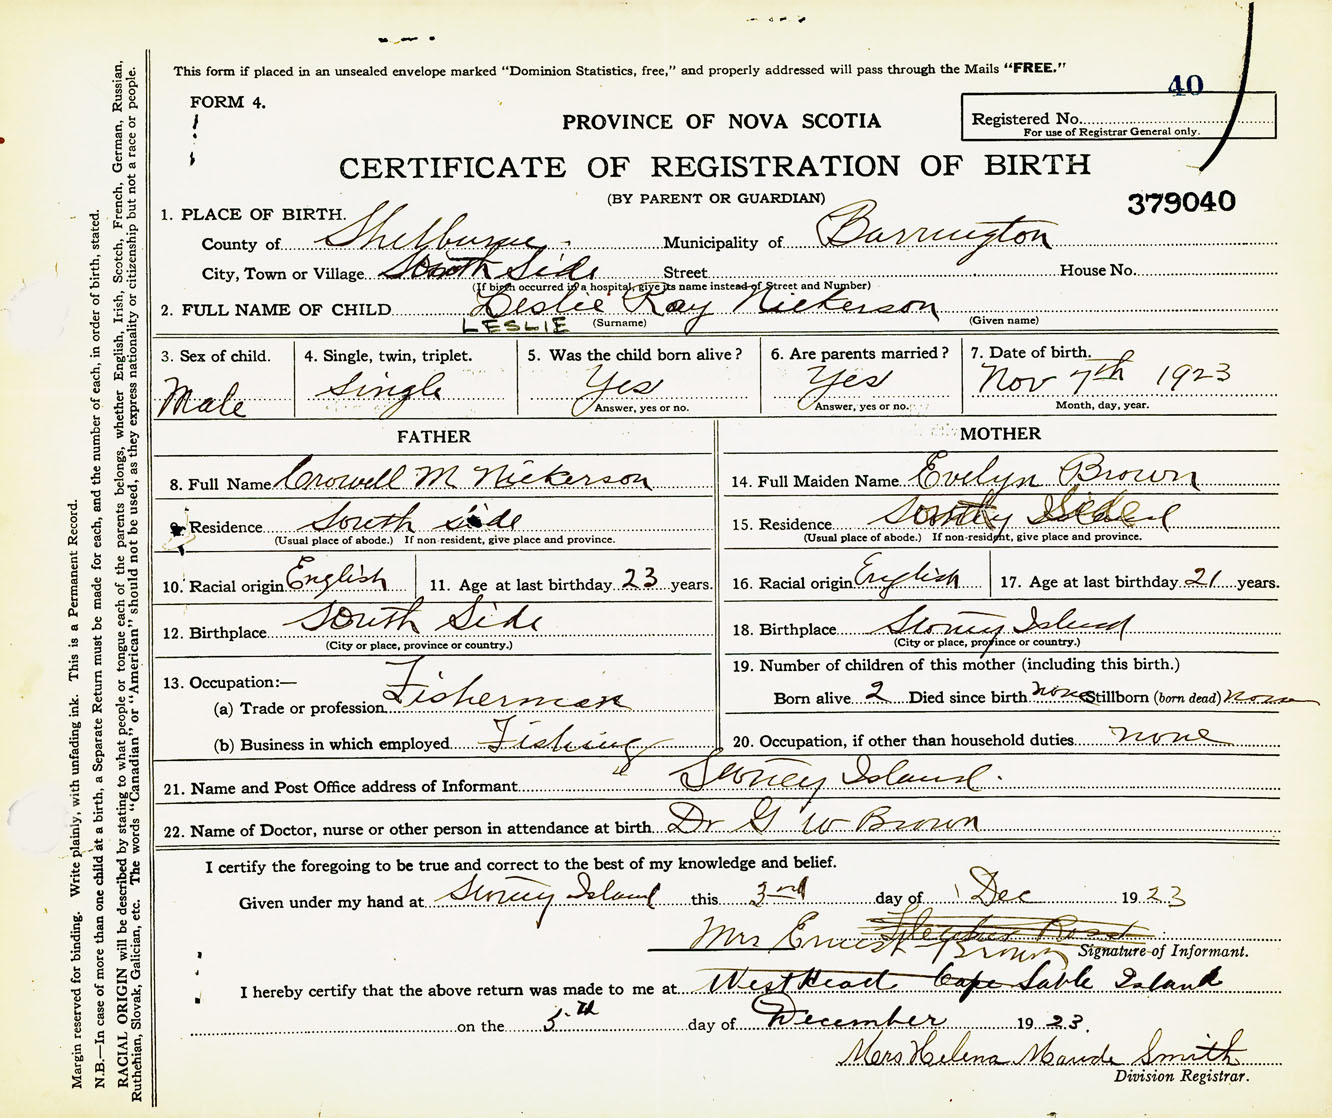 This form if placed in an unsealed envelope marked "Dominion Statistics, free," and properly addressed will pass through the Mails "FREE."
40
FORM 4.
Registered No.
For use of Registrar General only.
PROVINCE OF NOVA SCOTIA
CERTIFICATE OF REGISTRATION OF BIRTH
(BY PARENT OR GUARDIAN)
379040
1. PLACE OF BIRTH.
County of Shelburne Municipality of Barrington
City, Town or Village South Side Street House No.
(If birth occurred in a hospital, give its name instead of Street and Number)
2. FULL NAME OF CHILD Leslie Ray Nickerson
LESLIE (Surname) (Given name)
3. Sex of child. 4. Single, twin, triplet. 5. Was the child born alive? 6. Are parents married? 7. Date of birth.
Male Single Yes Yes Nov 7th 1923
Answer, yes or no. Answer, yes or no. Month, day, year.
FATHER MOTHER
8. Full Name Crowell M Nickerson 14. Full Maiden Name Evelyn Brown
9. Residence South Side 15. Residence
(Usual place of abode.) If non-resident, give place and province. (Usual place of abode.) If non-resident, give place and province.
10. Racial origin English 11. Age at last birthday 23 years. 16. Racial origin English 17. Age at last birthday 21 years.
12. Birthplace South Side 18. Birthplace Stoney Island
(City or place, province or country.) (City or place, province or country.)
13. Occupation:— 19. Number of children of this mother (including this birth.)
(a) Trade or profession Fisherman Born alive 2 Died since birth none Stillborn (born dead) none
(b) Business in which employed Fishing 20. Occupation, if other than household duties none
21. Name and Post Office address of Informant Stoney Island.
22. Name of Doctor, nurse or other person in attendance at birth Dr G W Brown
I certify the foregoing to be true and correct to the best of my knowledge and belief.
Given under my hand at Stoney Island this 3rd day of Dec 1923
Mrs Ernest Brown
Signature of Informant.
I hereby certify that the above return was made to me at West Head Cape Sable Island
on the 5th day of December 1923.
Mrs Helena Maude Smith
Division Registrar.
Margin reserved for binding. Write plainly, with unfading ink. This is a Permanent Record.
N.B.—In case of more than one child at a birth, a Separate Return must be made for each, and the number of each, in order of birth, stated.
RACIAL ORIGIN will be described by stating to what people or tongue each of the parents belongs, whether English, Irish, Scotch, French, German, Russian,
Ruthenian, Slovak, Galician, etc. The words "Canadian" or "American" should not be used, as they express nationality or citizenship but not a race or people.